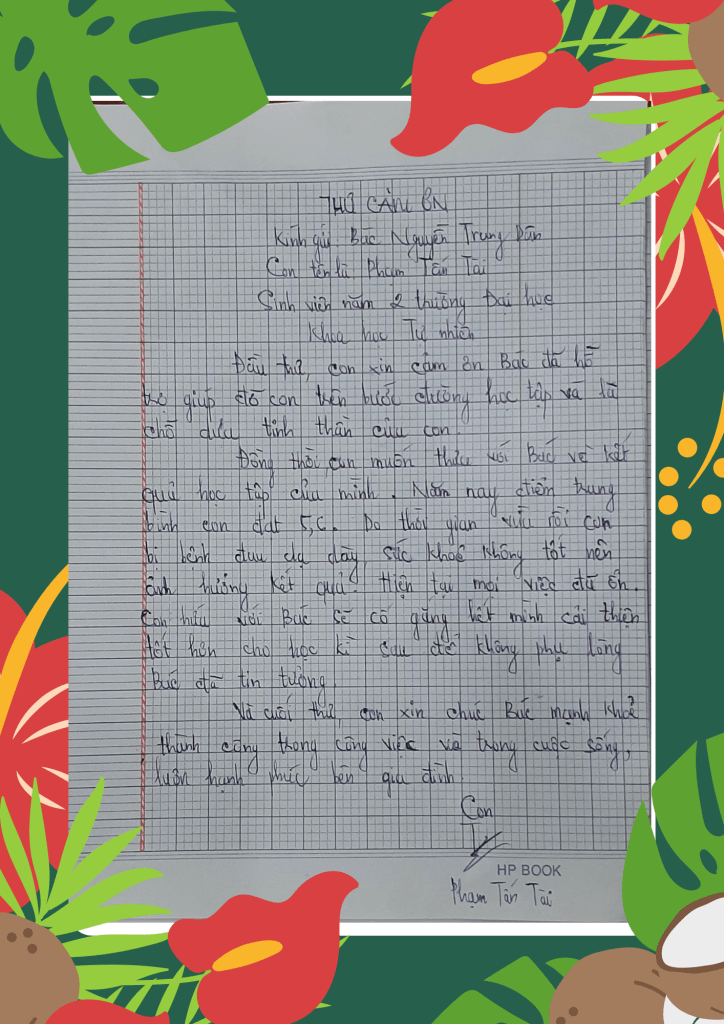 THƯ CẢM ƠN
Kính gửi: Bác Nguyễn Trung Dân
Con tên là Phạm Tấn Tài
Sinh viên năm 2 trường Đại học
Khoa học Tự nhiên
Đầu thư, con xin cảm ơn Bác đã hỗ
trợ giúp đỡ con trên bước đường học tập và là
chỗ dựa tinh thần của con.
Đồng thời, con muốn thưa với Bác về kết
quả học tập của mình. Năm nay điểm trung
bình con đạt 5,6. Do thời gian vừa rồi con
bị bệnh đau dạ dày, sức khoẻ không tốt nên
ảnh hưởng kết quả. Hiện tại mọi việc đã ổn.
Con hứa với Bác sẽ cố gắng hết mình cải thiện
tốt hơn cho học kì sau để không phụ lòng
Bác đã tin tưởng.
Và cuối thư, con xin chúc Bác mạnh khoẻ
thành công trong công việc và trong cuộc sống,
luôn hạnh phúc bên gia đình.
Con
HP BOOK
Phạm Tấn Tài